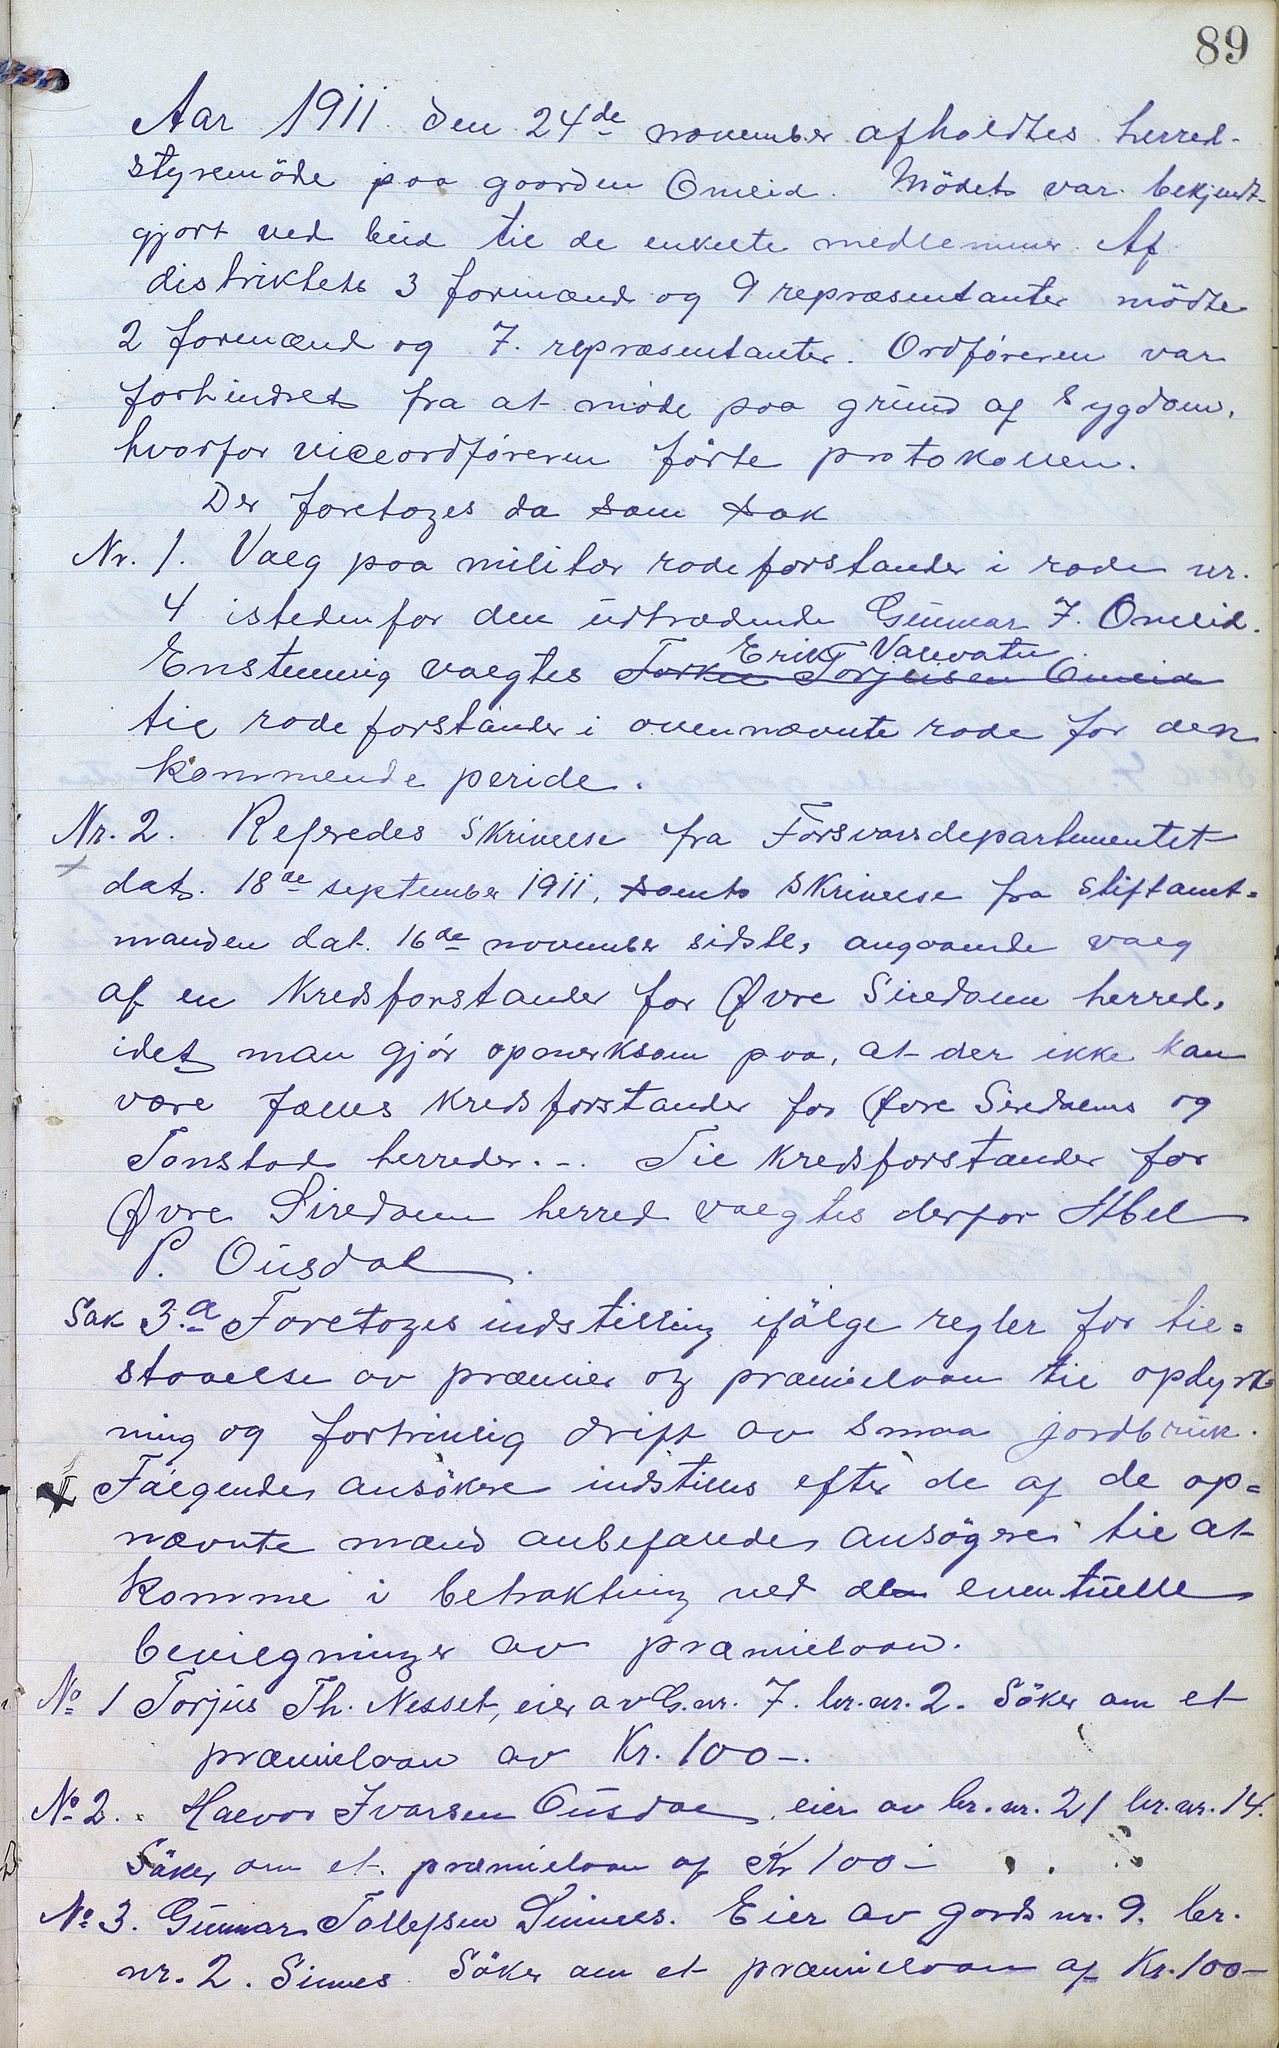 89
Aar 1911 den 24de november afholdtes herred-
styremöde paa gaarden Omlid. Mödet var bekjendt-
gjort ved bud til de enkelte medlemmer. Af
distriktets 3 formænd og 9 repræsentanter mödte
2 formænd og 7. repræsentanter. Ordföreren var
forhindret fra at möde paa grund af sygdom,
hvorfor viceordföreren förte protokollen.
Der foretoges da som sak
Nr. 1. Valg paa militær rodeforstander i rode nr.
4 istedenfor den udtrædende Gunnar T. Omlid.
Erik Valevatn
Enstemmig valgtes Torkel Torjusen Omlid
til rodeforstander i ovennævnte rode for den
kommende peride.
Nr. 2. Refredes skrivelse fra Forsvarsdepartementet
dat. 18de september 1911, samt skrivelse fra stiftamt=
manden dat. 16de november sidstl, angaaende valg
af en kredsforstander for Øvre Siredalen herred,
idet man gjör opmerksom paa, at der ikke kan
være fælles kredsforstander for Øvre Siredalens og
Tonstad herreder. -. Til kredsforstander for
Øvre Siredalen herred valgtes derfor Abel
P. Ousdal.
Sak 3.a Foretoges indstilling ifölge regler for til=
staaelse av præmier og præmielaan til opdyrk=
ning og fortrinlig drift av smaa jordbruk.
Fölgende ansökere indstilles efter de af de op=
nævnte mænd anbefalede ansögere til at
komme i betraktning ved de eventuelle
bevilgninger av præmielaan.
No 1 Torjus Th. Nesset, eier av G.nr. 7. br.nr. 2. Söker om et
præmielaan av Kr. 100-.
No 2. Halvor Ivarsen Ousdal, eier av br. nr. 21 br. nr. 14.
Söker om et præmielaan af Kr 100-
No 3. Gunnar Tollefsen Sinnes. Eier av gards nr. 9. br.
nr. 2. Sinnes. Söker om et præmielaan af Kr. 100-